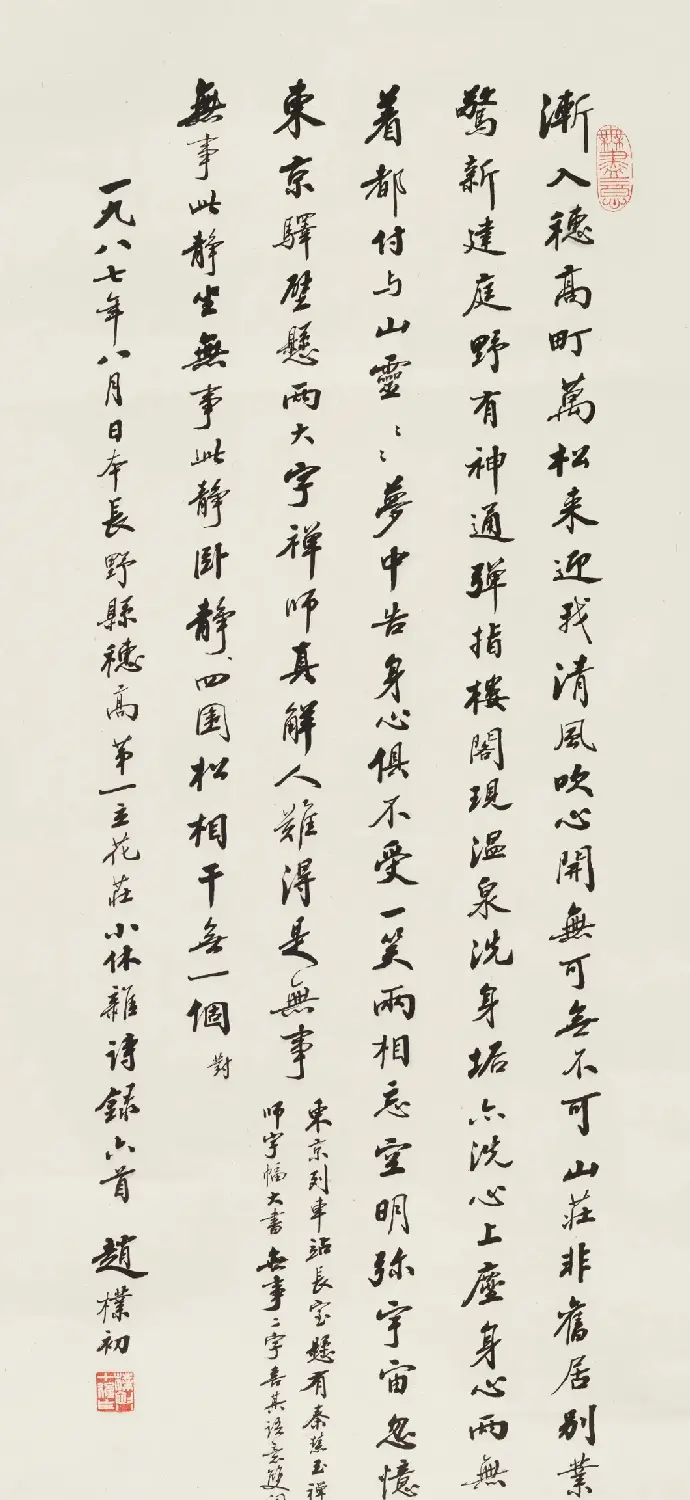 無盡意
漸入穗高町萬松来迎我清風吹心開無可無不可山莊非舊居别業
驚新建庭野有神通弹指樓閣現温泉洗身垢亦洗心上塵身心兩無
着都付与山靈山靈夢中告身心俱不受一笑兩相忘空明弥宇宙忽憶
東京驛壁懸兩大字禅师真解人難得是無事
東京列車站長室懸有秦慧玉禅
师字幅大書無事二字喜其語意
無事此静坐無事此静卧静對四圍松相干無一個
對
一九八七年八月日本長野縣穗高第一立花莊小休雜詩錄六首 趙樸初